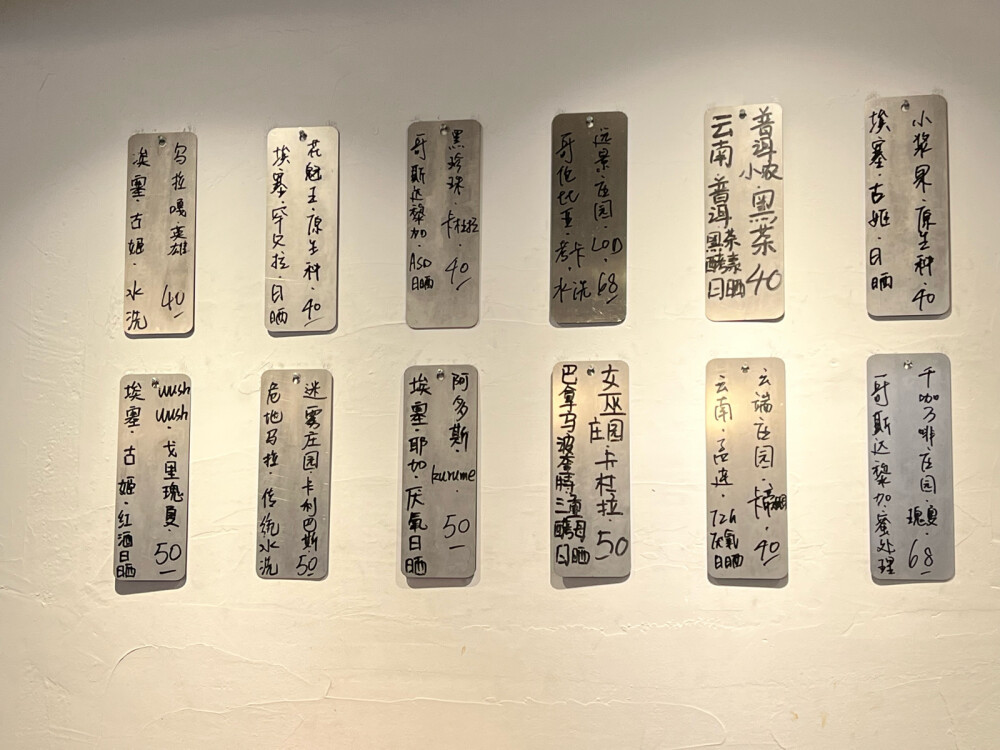 乌拉嘎·英雄 40
埃塞·古姬·水洗
花魁王·原生种·40
埃塞·罕贝拉·日晒
黑珍珠·卡杜拉·40
哥斯达黎加·ASD日晒
远景庄园·LOD·68
哥伦比亚·考卡·水洗
普洱小农黑茶40
云南普洱黑茶酵素日晒
小浆果·原生种·40
埃塞·古姬·日晒
wush wush·戈里瑰夏·50
埃塞·古姬·红酒日晒
迷雾庄园·卡利巴斯 50
危地马拉·传统水洗
阿多斯·kurume·50
埃塞·耶加·厌氧日晒
女巫庄园·卡杜拉·50
巴拿马·波奎特 三重酵母日晒
云端庄园·40
云南·孟连·72h厌氧日晒
千咖乃啡·庄园·瑰夏·68
哥斯达黎加·蜜处理